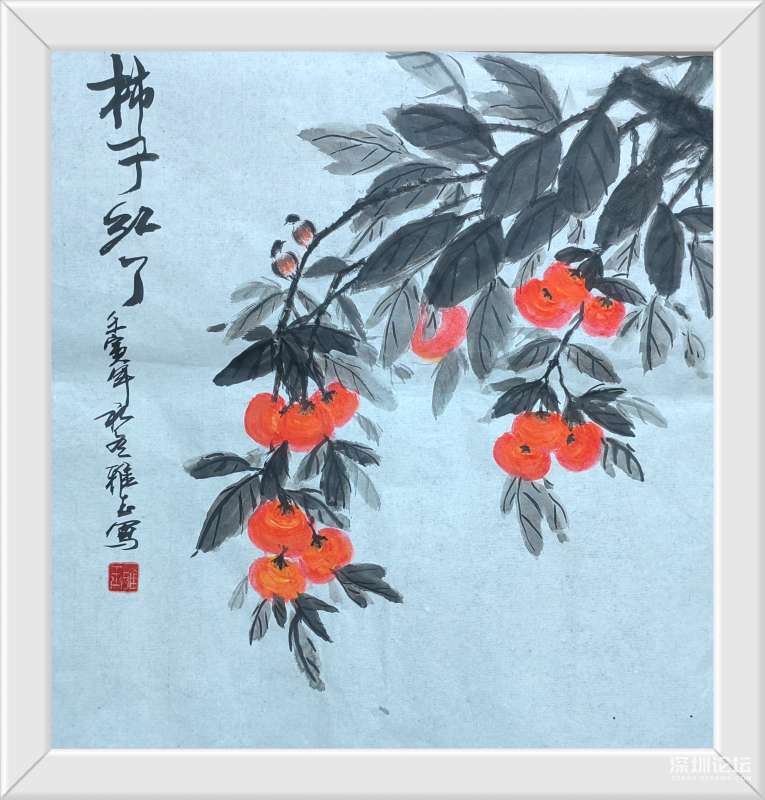 柿子红了
壬寅年秋冬雅正写
深圳论坛